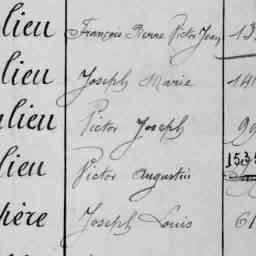 lieu François Pierre Victor Jean 13
lieu Joseph Marie 14
lieu Victor Joseph 99
lieu Victor Augustin 153
père Joseph Louis 61